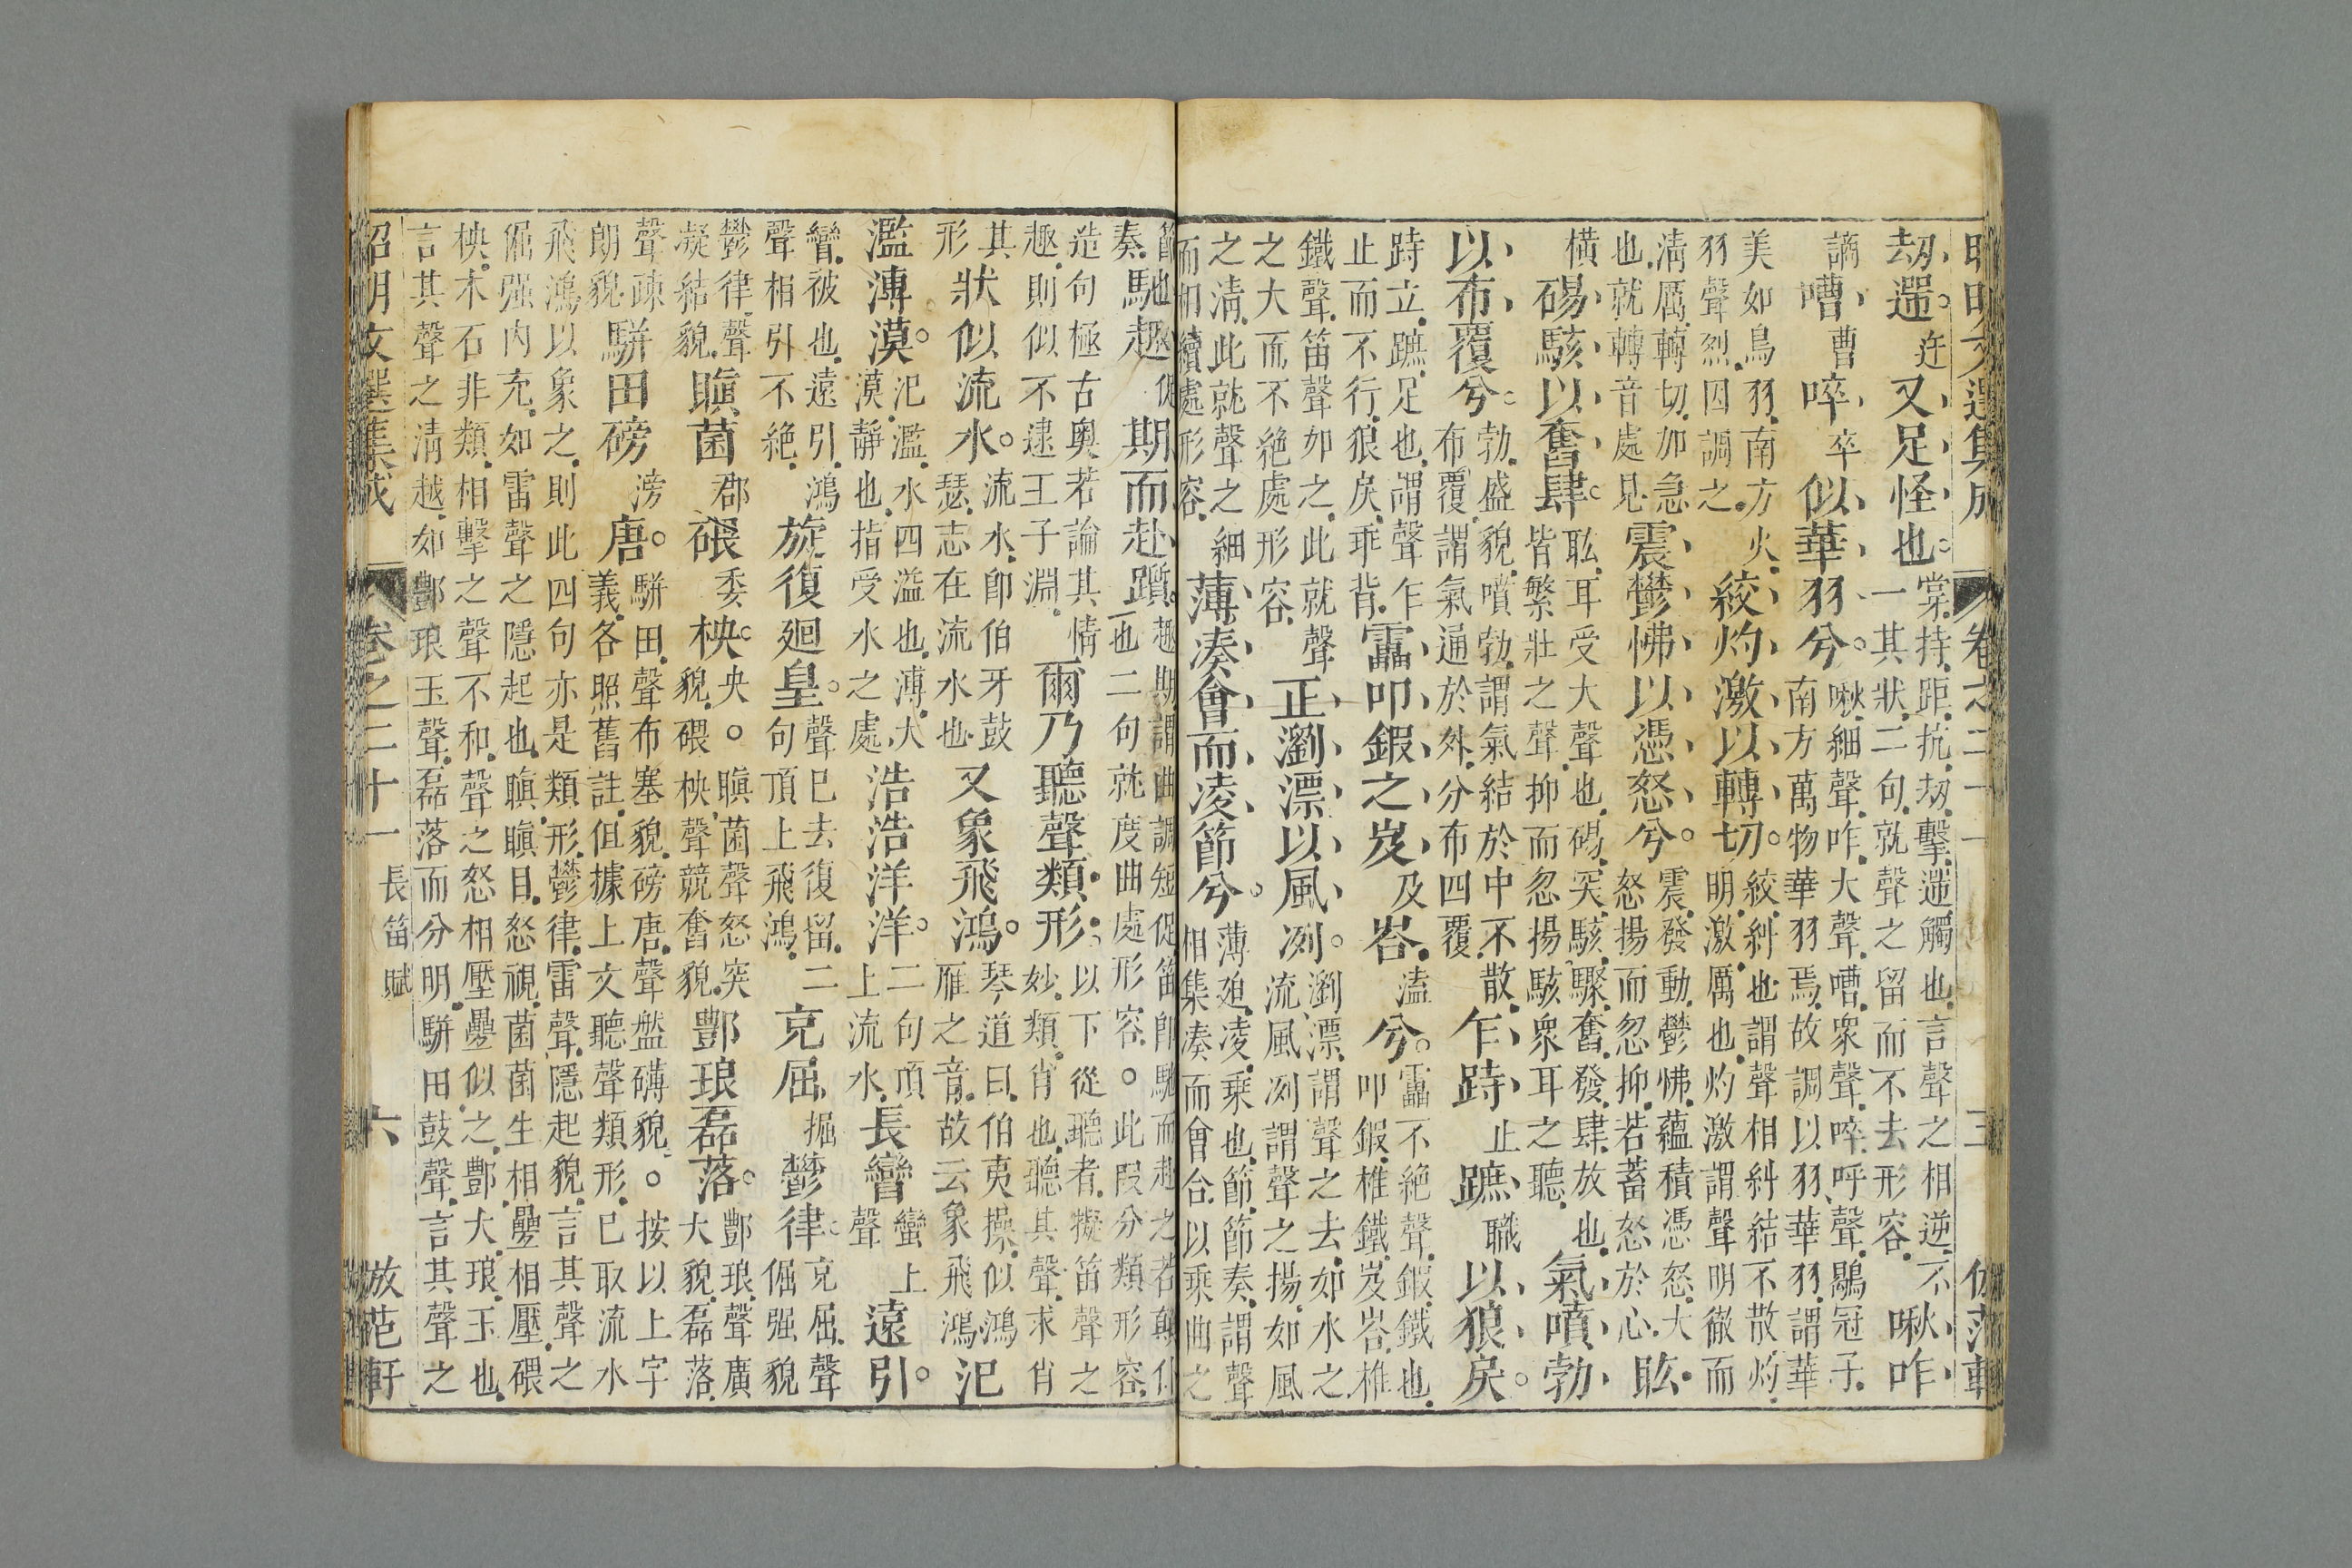 昭明文選集成 卷之二十一 三 倣范軒
劫遻。迕又足怪也。掌持距抗劫擊遻觸也言聲之相逆不
一其狀二句就聲之留而不去形容 啾咋
謫嘈曹啐卒似華羽兮。啾細聲咋大聲嘈衆聲啐呼聲鶡冠子
南方萬物華羽焉故調以羽華羽謂華
美如鳥羽南方火
羽聲烈因調之 絞灼激以轉切。絞糾也謂聲相糾結不散灼
明激厲也灼激謂聲明徹而
清厲轉切如急
也就轉音處見 震鬱怫以憑怒兮。震發動鬱怫蘊積憑怒大
怒揚而忽抑若蓄怒於心 䀕
橫碭駭以奮肆。䀕耳受大聲也碭突駭驟奮發肆放也
皆繁壯之聲抑而忽揚駭衆耳之聽 氣噴勃
以布覆兮。勃盛貌噴勃謂氣結於中不散
布覆謂氣通於外分布四覆 乍跱止蹠職以狼戾。
跱立蹠足也謂聲乍
止而不行狼戾乖背 靁叩鍛之岌及峇溘兮。靁不絶聲鍛鐵也
叩鍛椎鐵岌峇椎
鐵聲笛聲如之此就聲
之大而不絶處形容 正瀏漂以風冽。瀏漂謂聲之去如水之
流風冽謂聲之揚如風
之清此就聲之細
而相續處形容 薄湊會而凌節兮。薄迫凌乘也節節奏謂聲
相集湊而會合以乘曲之
奏馳趣促期而赴躓。趣期謂曲調短促笛卽馳而赴之若顛仆
也二句就度曲處形容。此叚分類形容
造句極古奥若論其情
趣則似不逮王子淵 爾乃聽聲類形。以下從聽者擬笛聲之
妙類肖也聽其聲求肖
其
形狀似流水。流水卽伯牙鼓
瑟志在流水也 又象飛鴻。琴道曰伯夷操似鴻
雁之音故云象飛鴻 氾
濫溥漠。氾濫水四溢也溥大
漠靜也指受水之處 浩浩洋洋。二句頂
上流水 長矕蠻上聲遠引。
矕被也遠引鴻
聲相引不絶 旋復廻皇。聲已去復留二
句頂上飛鴻 充屈掘鬱律。充屈聲
倔强貌
鬱律聲
凝結貌 瞋菌郡碨委柍央。瞋菌聲怒突
貌碨柍聲競奮貌 酆琅磊落。酆琅聲廣
大貌磊落
聲疎
朗貌 駢田磅滂唐。駢田聲布塞貌磅唐聲盤礴貌。按以上字
義各照舊註但據上文聽聲類形已取流水
飛鴻以象之則此四句亦是類形鬱律雷聲隱起貌言其聲之
倔强内充如雷聲之隱起也瞋瞋目怒視菌菌生相壘相壓碨
柍木石非類相擊之聲不和聲之怒相壓壘似之酆大琅玉也
言其聲之清越如酆琅玉聲磊落而分明駢田鼓聲言其聲之
昭明文選集成 卷之二十一 長笛賦 六 倣范軒